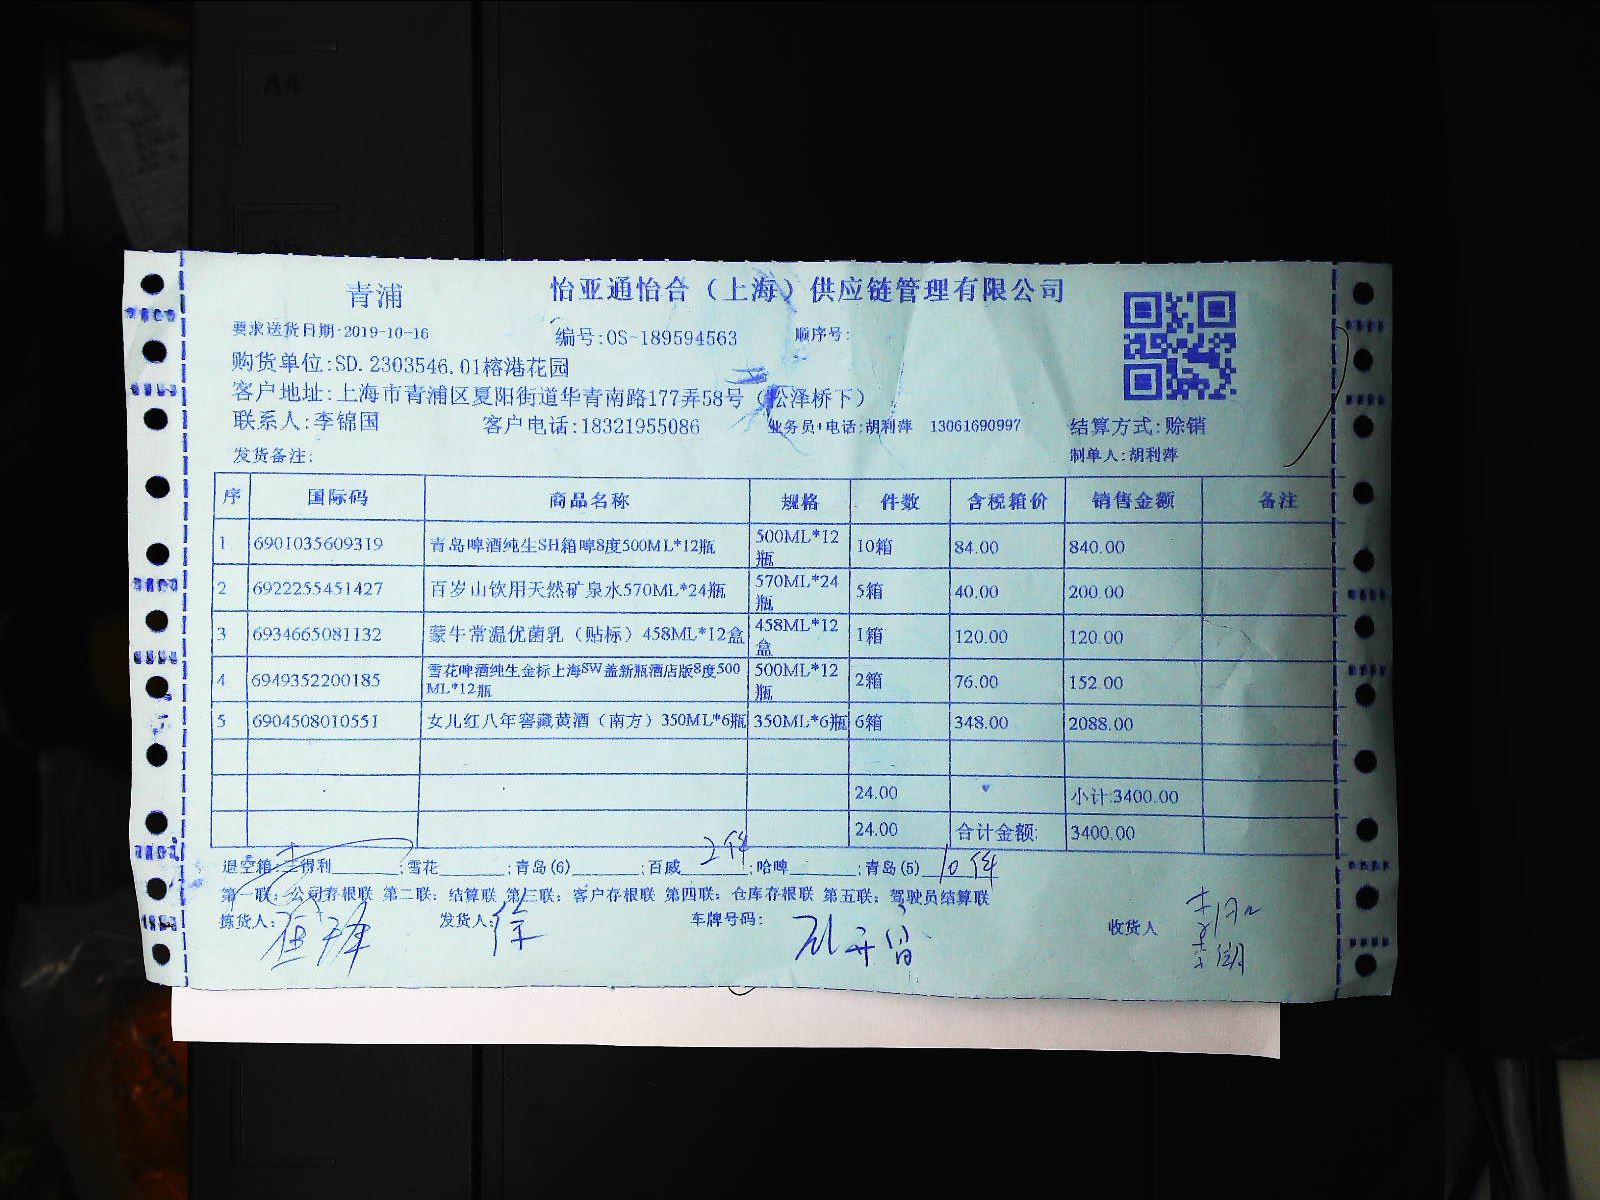 A4
A5
青浦
怡亚通怡合（上海）供应链管理有限公司
要求送货日期:2019-10-16 编号:OS-189594563 顺序号:
购货单位:SD.2303546.01榕港花园
客户地址:上海市青浦区夏阳街道华青南路177弄58号（松泽桥下）
联系人:李锦国 客户电话:18321955086 业务员+电话:胡利萍 13061690997 结算方式:赊销
发货备注: 制单人:胡利萍
序 国际码 商品名称 规格 件数 含税箱价 销售金额 备注
1 6901035609319 青岛啤酒纯生SH箱啤8度500ML*12瓶 500ML*12瓶 10箱 84.00 840.00
2 6922255451427 百岁山饮用天然矿泉水570ML*24瓶 570ML*24瓶 5箱 40.00 200.00
3 6934665081132 蒙牛常温优菌乳（贴标）458ML*12盒 458ML*12盒 1箱 120.00 120.00
4 6949352200185 雪花啤酒纯生金标上海SW盖新瓶酒店版8度500ML*12瓶 500ML*12瓶 2箱 76.00 152.00
5 6904508010551 女儿红八年窖藏黄酒（南方）350ML*6瓶 350ML*6瓶 6箱 348.00 2088.00
24.00 小计:3400.00
24.00 合计金额: 3400.00
退空箱:三得利______;雪花______;青岛(6)______;百威 2件;哈啤______;青岛(5) 10件
第一联：公司存根联 第二联：结算联 第三联：客户存根联 第四联：仓库存根联 第五联：驾驶员结算联
拣货人: 发货人:徐 车牌号码: 收货人